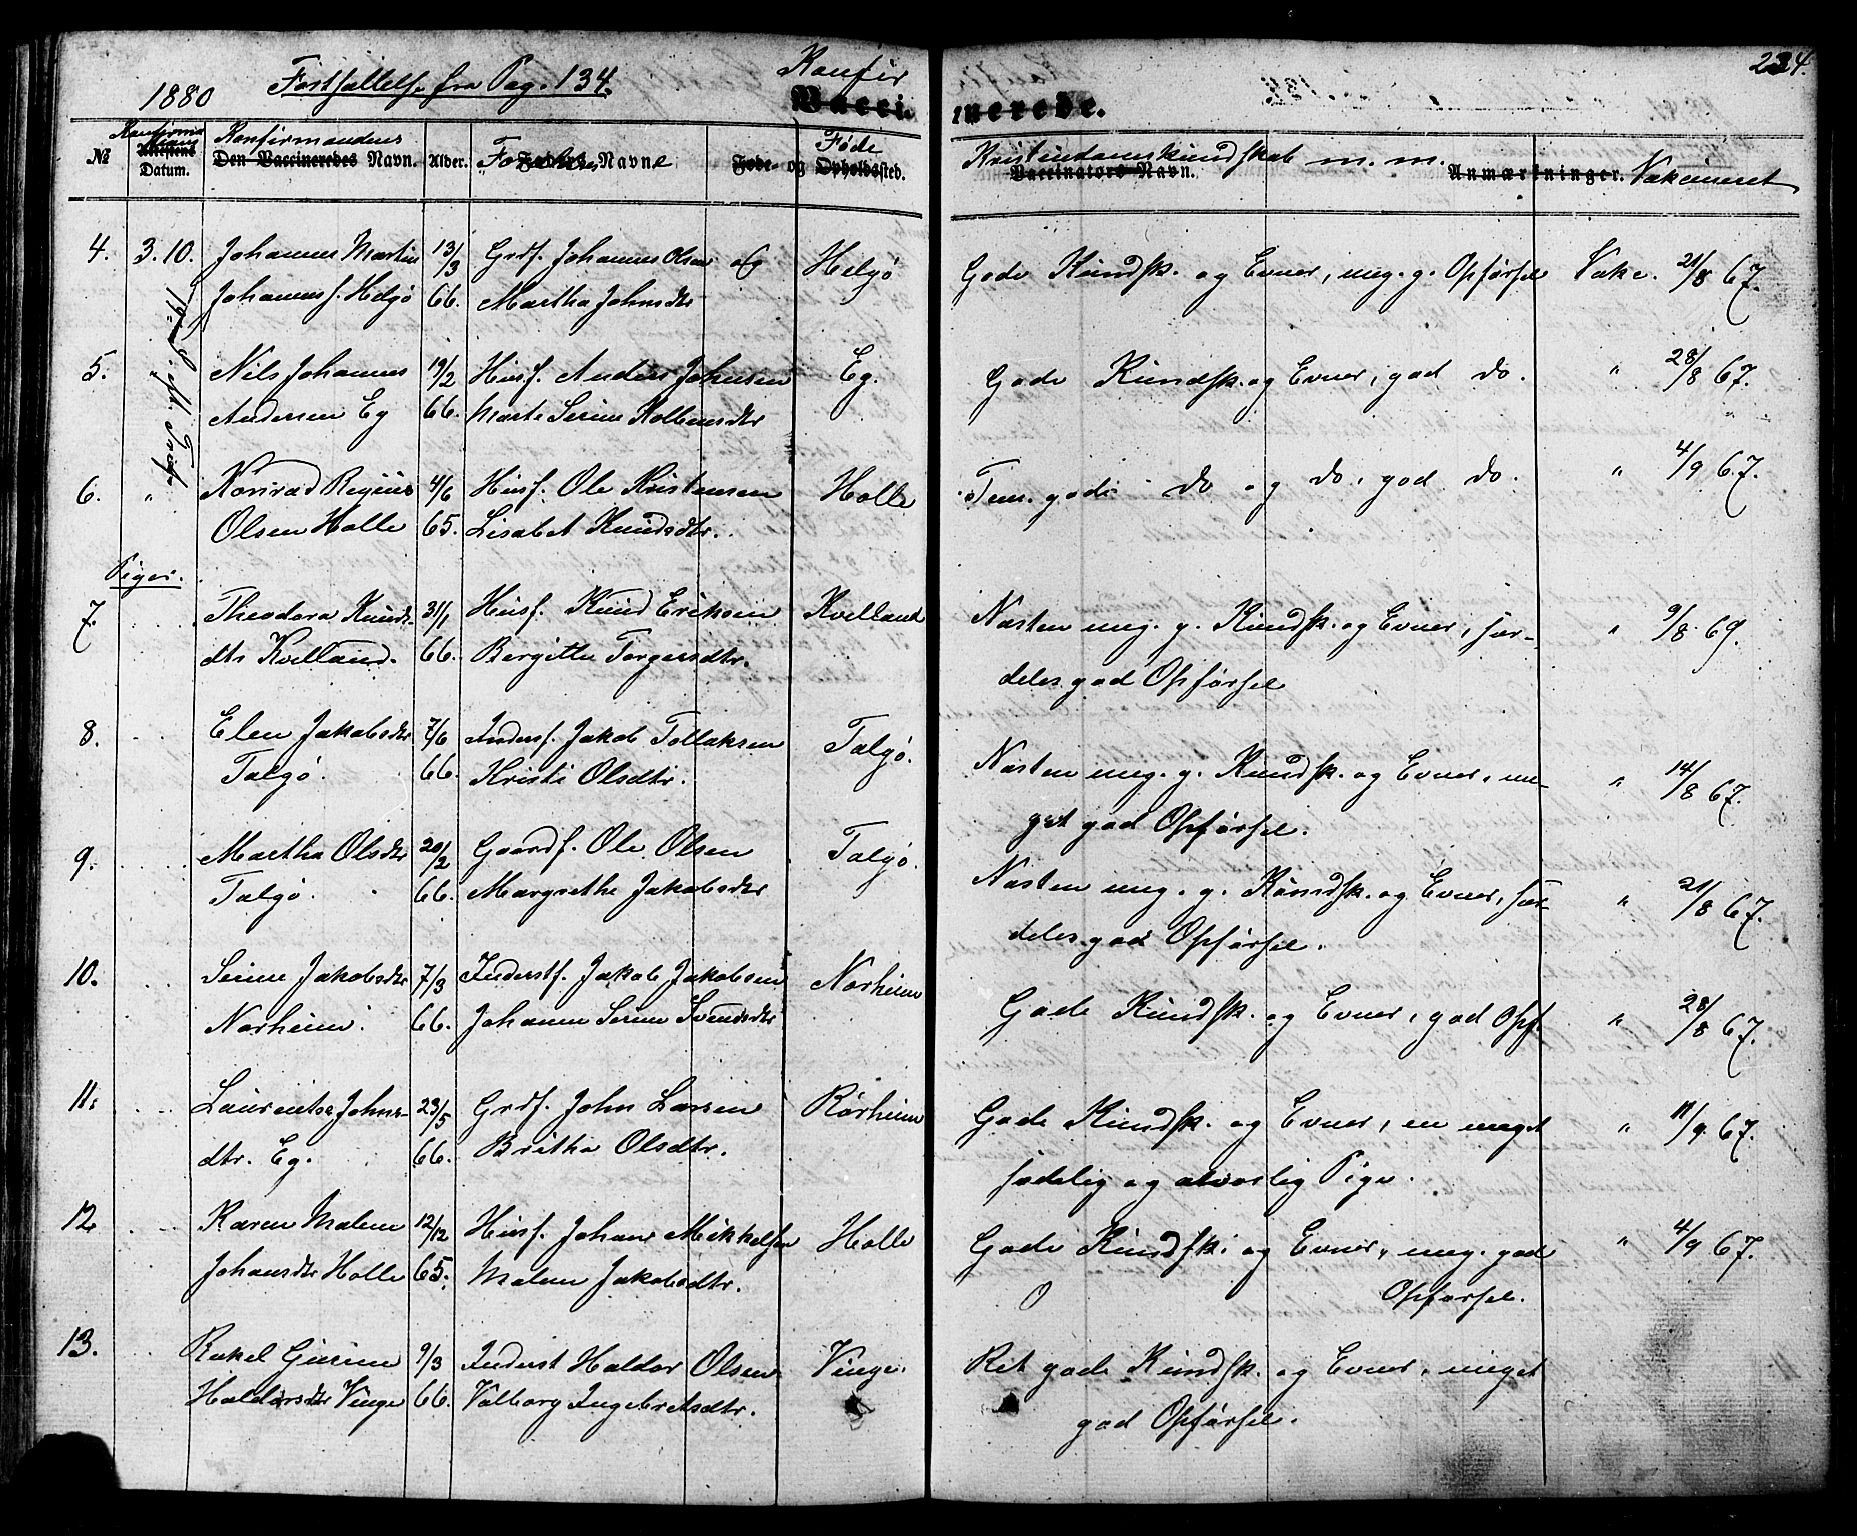 234.
1880 Fortsættelse fra Pag. 134. Konfir
Vacci- nerede.
№ Konfirma- Datum. Konfirmandens Den Vaccineredes Navn. Alder. Forældres Navne Føde- og Føde Opholdssted. Kristendomskundskab m. m. Vaccinators Navn. Anmærkninger. Vakcineret
4. 3.10. Johannes Martin 13/3 Grdf. Johannes Olsen og Helgø Gode Kundsk. og Evner, meg. g. Opførsel Vakc. 21/8 67.
Johannesf. Helgø 66. Martha Johnsdtr
19. S. eft. Trif.
5. Nils Johannes 19/2 Husf. Anders Johnsen Eg. Gode Kundsk. og Evner, god do. " 28/8 67.
Andersen Eg 66. Marte Serine Kolbensdtr
6. " Konrad Regius 4/6 Husf. Ole Kristensen Holle Tem. gode do og do, god do. " 4/9 67.
Olsen Holle 65. Lisabet Knudsdtr.
Piger.
7. Theodora Knuds- 31/1 Husf. Knud Eriksen Kvelland Næsten meg. g. Kundsk. og Evner, sær- " 9/8 69.
dtr Kvelland. 66. Bergitte Torgersdtr. deles god Opførsel
8. Elen Jakobsdtr 7/6 Inders f. Jakob Tollaksen Talgø. Næsten meg. g. Kundsk. og Evner, me- " 14/8 67.
Talgø. 66. Kristi Olsdtr. get god Opførsel.
9. Martha Olsdtr 20/2 Gaardf. Ole Olsen Talgø. Næsten meg. g. Kundsk. og Evner, sær- " 21/8 67.
Talgø. 66. Margrethe Jakobsdtr deles god Opførsel.
10. Serine Jakobsdtr 7/3 Inderstf. Jakob Jakobsen Norheim Gode Kundsk. og Evner, god Opf. " 28/8 67.
Norheim. 66. Johanne Serine Svendsdtr
11. Lauentse Johns- 23/5 Grdf. John Larsen Rørheim Gode Kundsk. og Evner, en meget " 11/9 67.
dtr. Eg. 66. Britha Olsdtr. sædelig og alvorlig Pige.
12 Karen Malene 12/12 Husf. Johans Mikkelsen Holle Gode Kundsk. og Evner, meg. god " 4/9 67.
Johansdtr Holle 65. Malene Jakobsdtr. Opførsel.
13. Rakel Gurine 9/3 Inderst Haldor Olsen Vinge. Ret gode Kundsk. og Evner, meget
Haldorsdtr Vinge 66. Valborg Ingebretsdtr. god Opførsel.